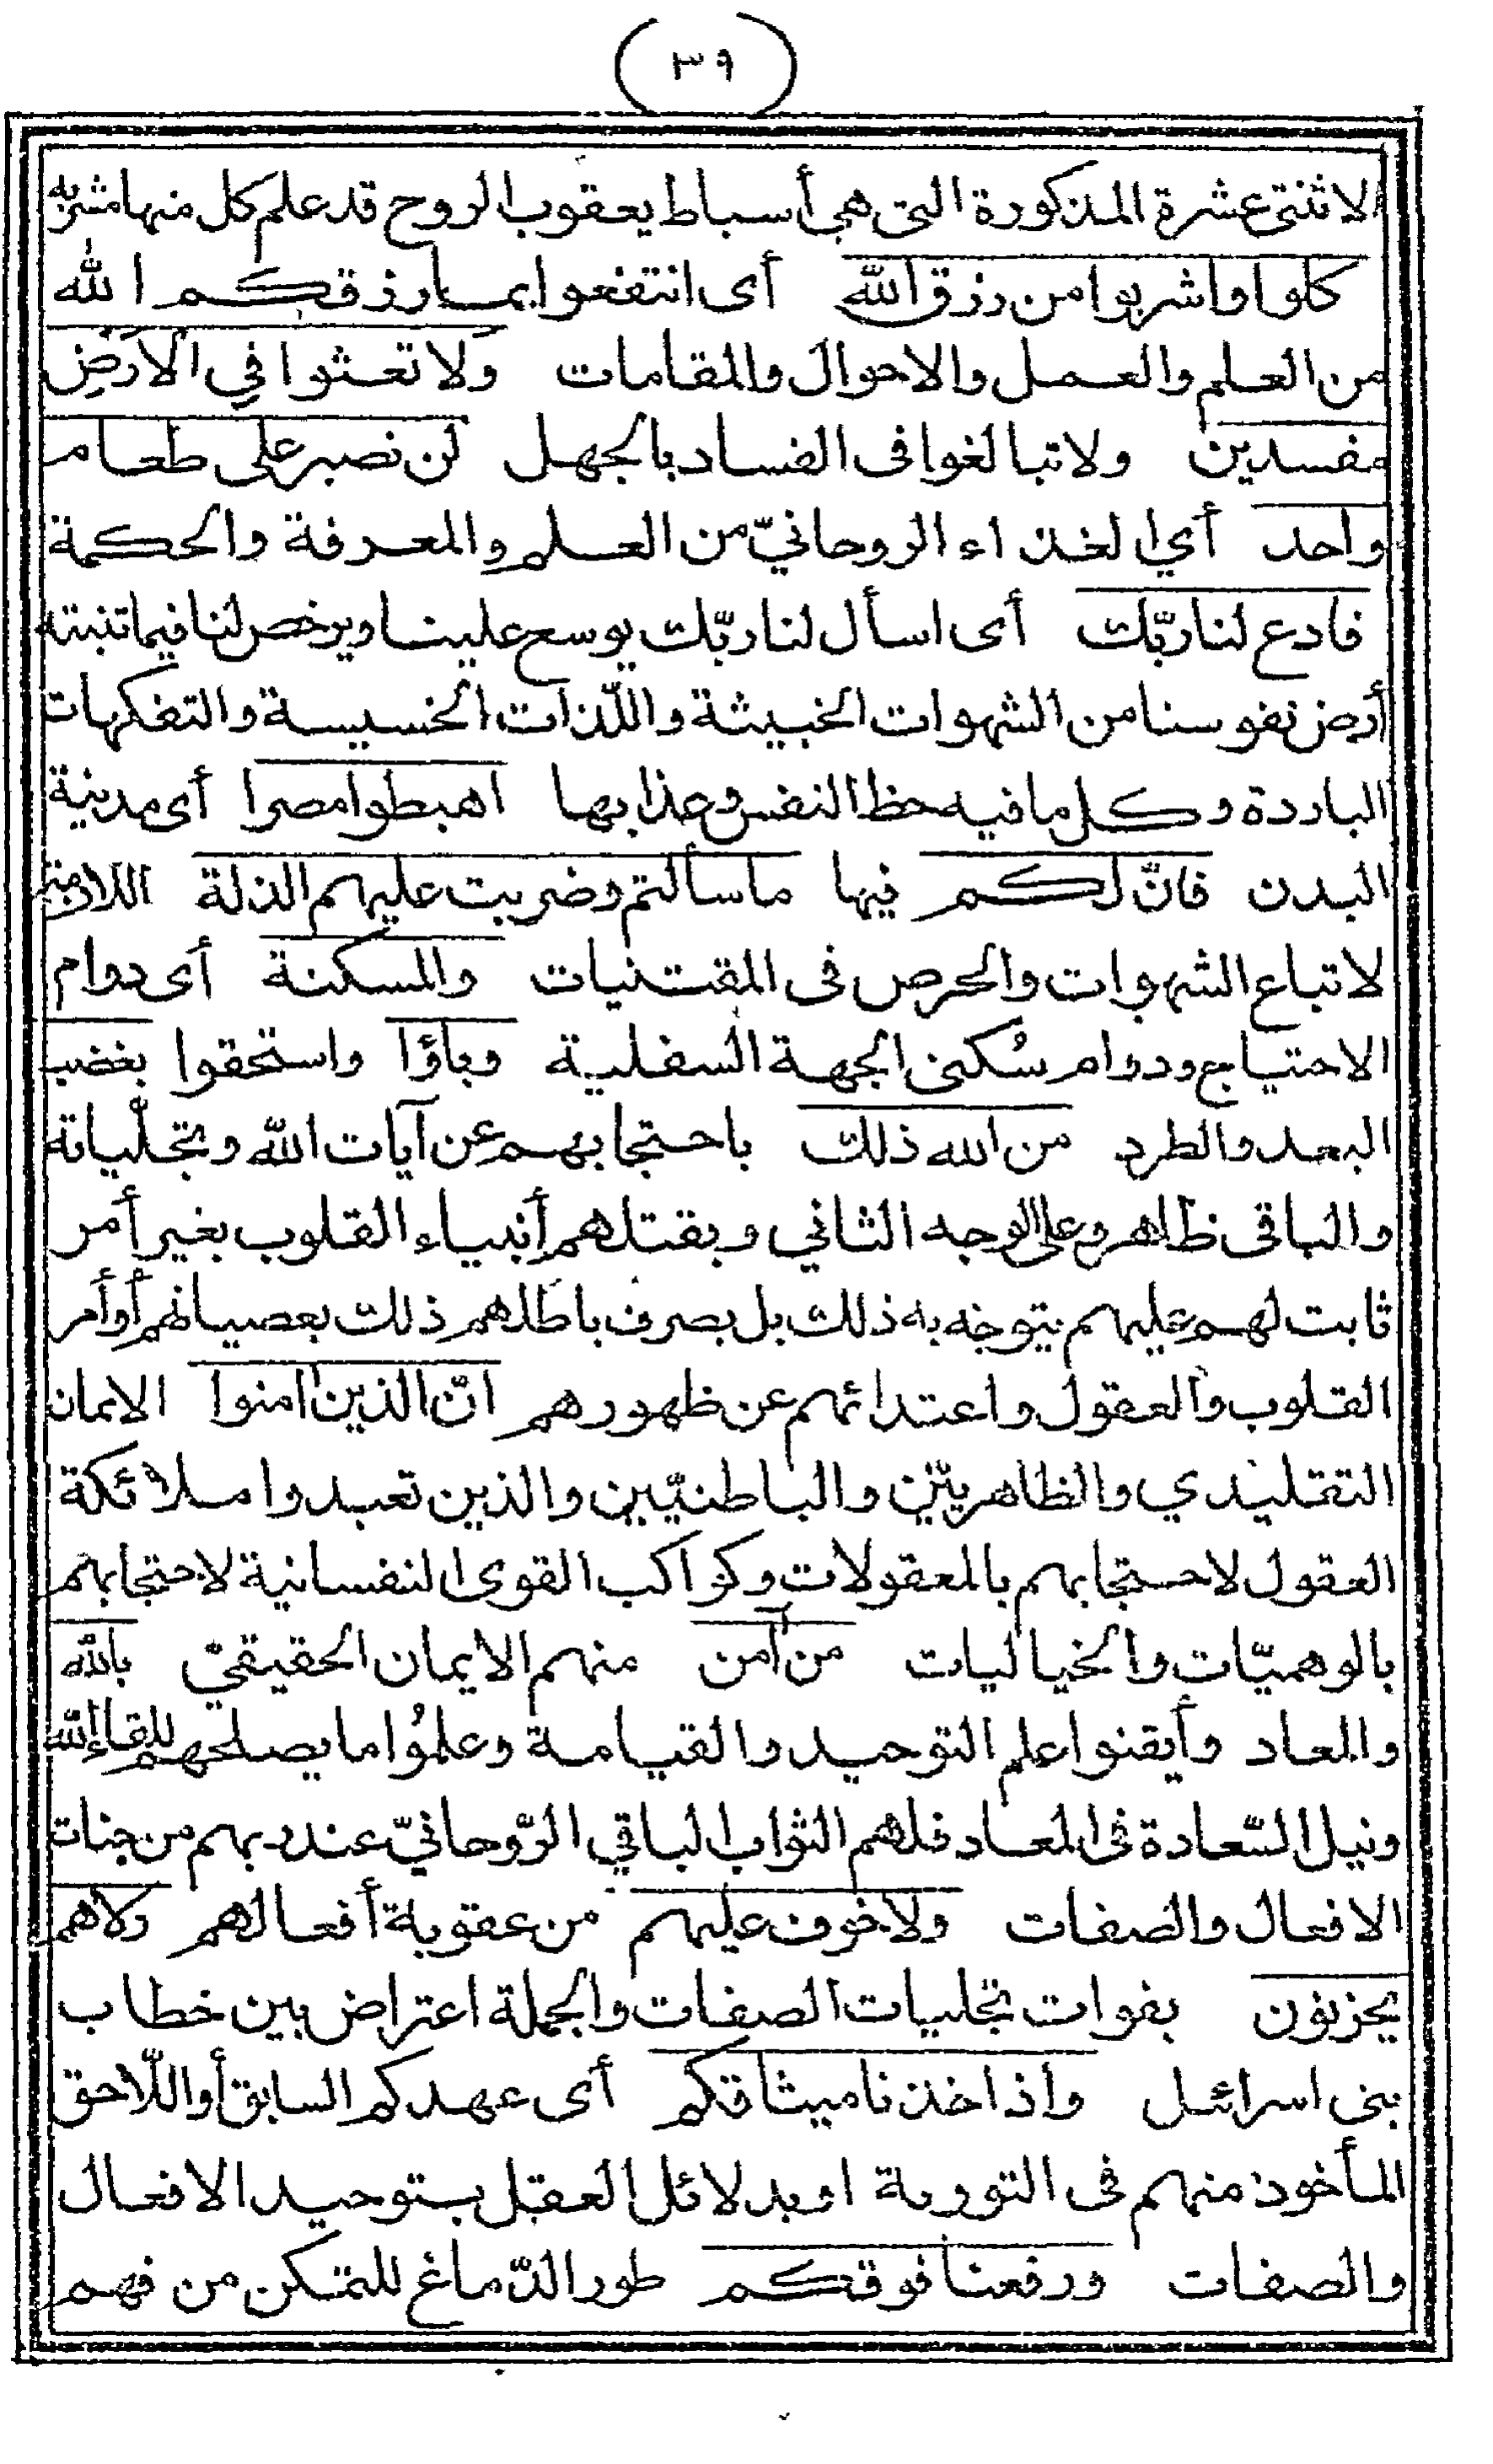 (٣٩)
الاثنتى عشرة المذكورة التى هى أسباط يعقوب الروح قد علم كل منها مشربه
كلوا واشربوا من رزق الله أى انتفعوا بما رزقكم الله
من العلم والعمل والاحوال والمقامات ولا تعثوا في الارض
مفسدين ولا تبالغوا فى الفساد بالجهل لن نصبر على طعام
واحد أي الغذاء الروحانيّ من العلم والمعرفة والحكمة
فادع لنا ربّك أى اسأل لنا ربّك يوسع علينا ويرخص لنا فيما تنبته
أرض نفوسنا من الشهوات الخبيثة واللّذات الخسيسة والتفكهات
الباردة وكل ما فيه حظ النفس وعذابها اهبطوا مصرا أى مدينة
البدن فانّ لكم فيها ما سألتم وضربت عليهم الذلة اللازمة
لاتباع الشهوات والحرص فى المقتنيات والمسكنة أى دوام
الاحتياج ودوام سُكنى الجهة السفلية وباؤا واستحقوا بغضب
البعد والطرد من الله ذلك باحتجابهم عن آيات الله وتجلّياته
والباقى ظاهر وعلى الوجه الثاني وبقتلهم أنبياء القلوب بغير أمر
ثابت لهم عليهم يتوجه به ذلك بل بصرف باطلهم ذلك بعصيانهم أوأمر
القلوب والعقول واعتدائهم عن ظهورهم انّ الذين امنوا الايمان
التقليدي والظاهريّين والباطنيّين والذين تعبدوا ملائكة
العقول لاحتجابهم بالمعقولات وكواكب القوى النفسانية لاحتجابهم
بالوهميّات والخياليات من آمن منهم الايمان الحقيقيّ بالله
والمعاد وأيقنوا علم التوحيد والقيامة وعلمُوا ما يصلحهم للقاء الله
ونيل السّعادة فى المعاد فلهم الثواب الباقي الرّوحانيّ عند ربهم من جنات
الافعال والصفات ولا خوف عليهم من عقوبة أفعالهم ولاهم
يحزنون بفوات تجليات الصفات والجملة اعتراض بين خطاب
بنى اسرائيل واذ اخذنا ميثاقكم أى عهدكم السابق أو اللّاحق
المأخوذ منهم فى التورية او بدلائل العقل بتوحيد الافعال
والصفات ورفعنا فوقكم طور الدّماغ للتمكن من فهم